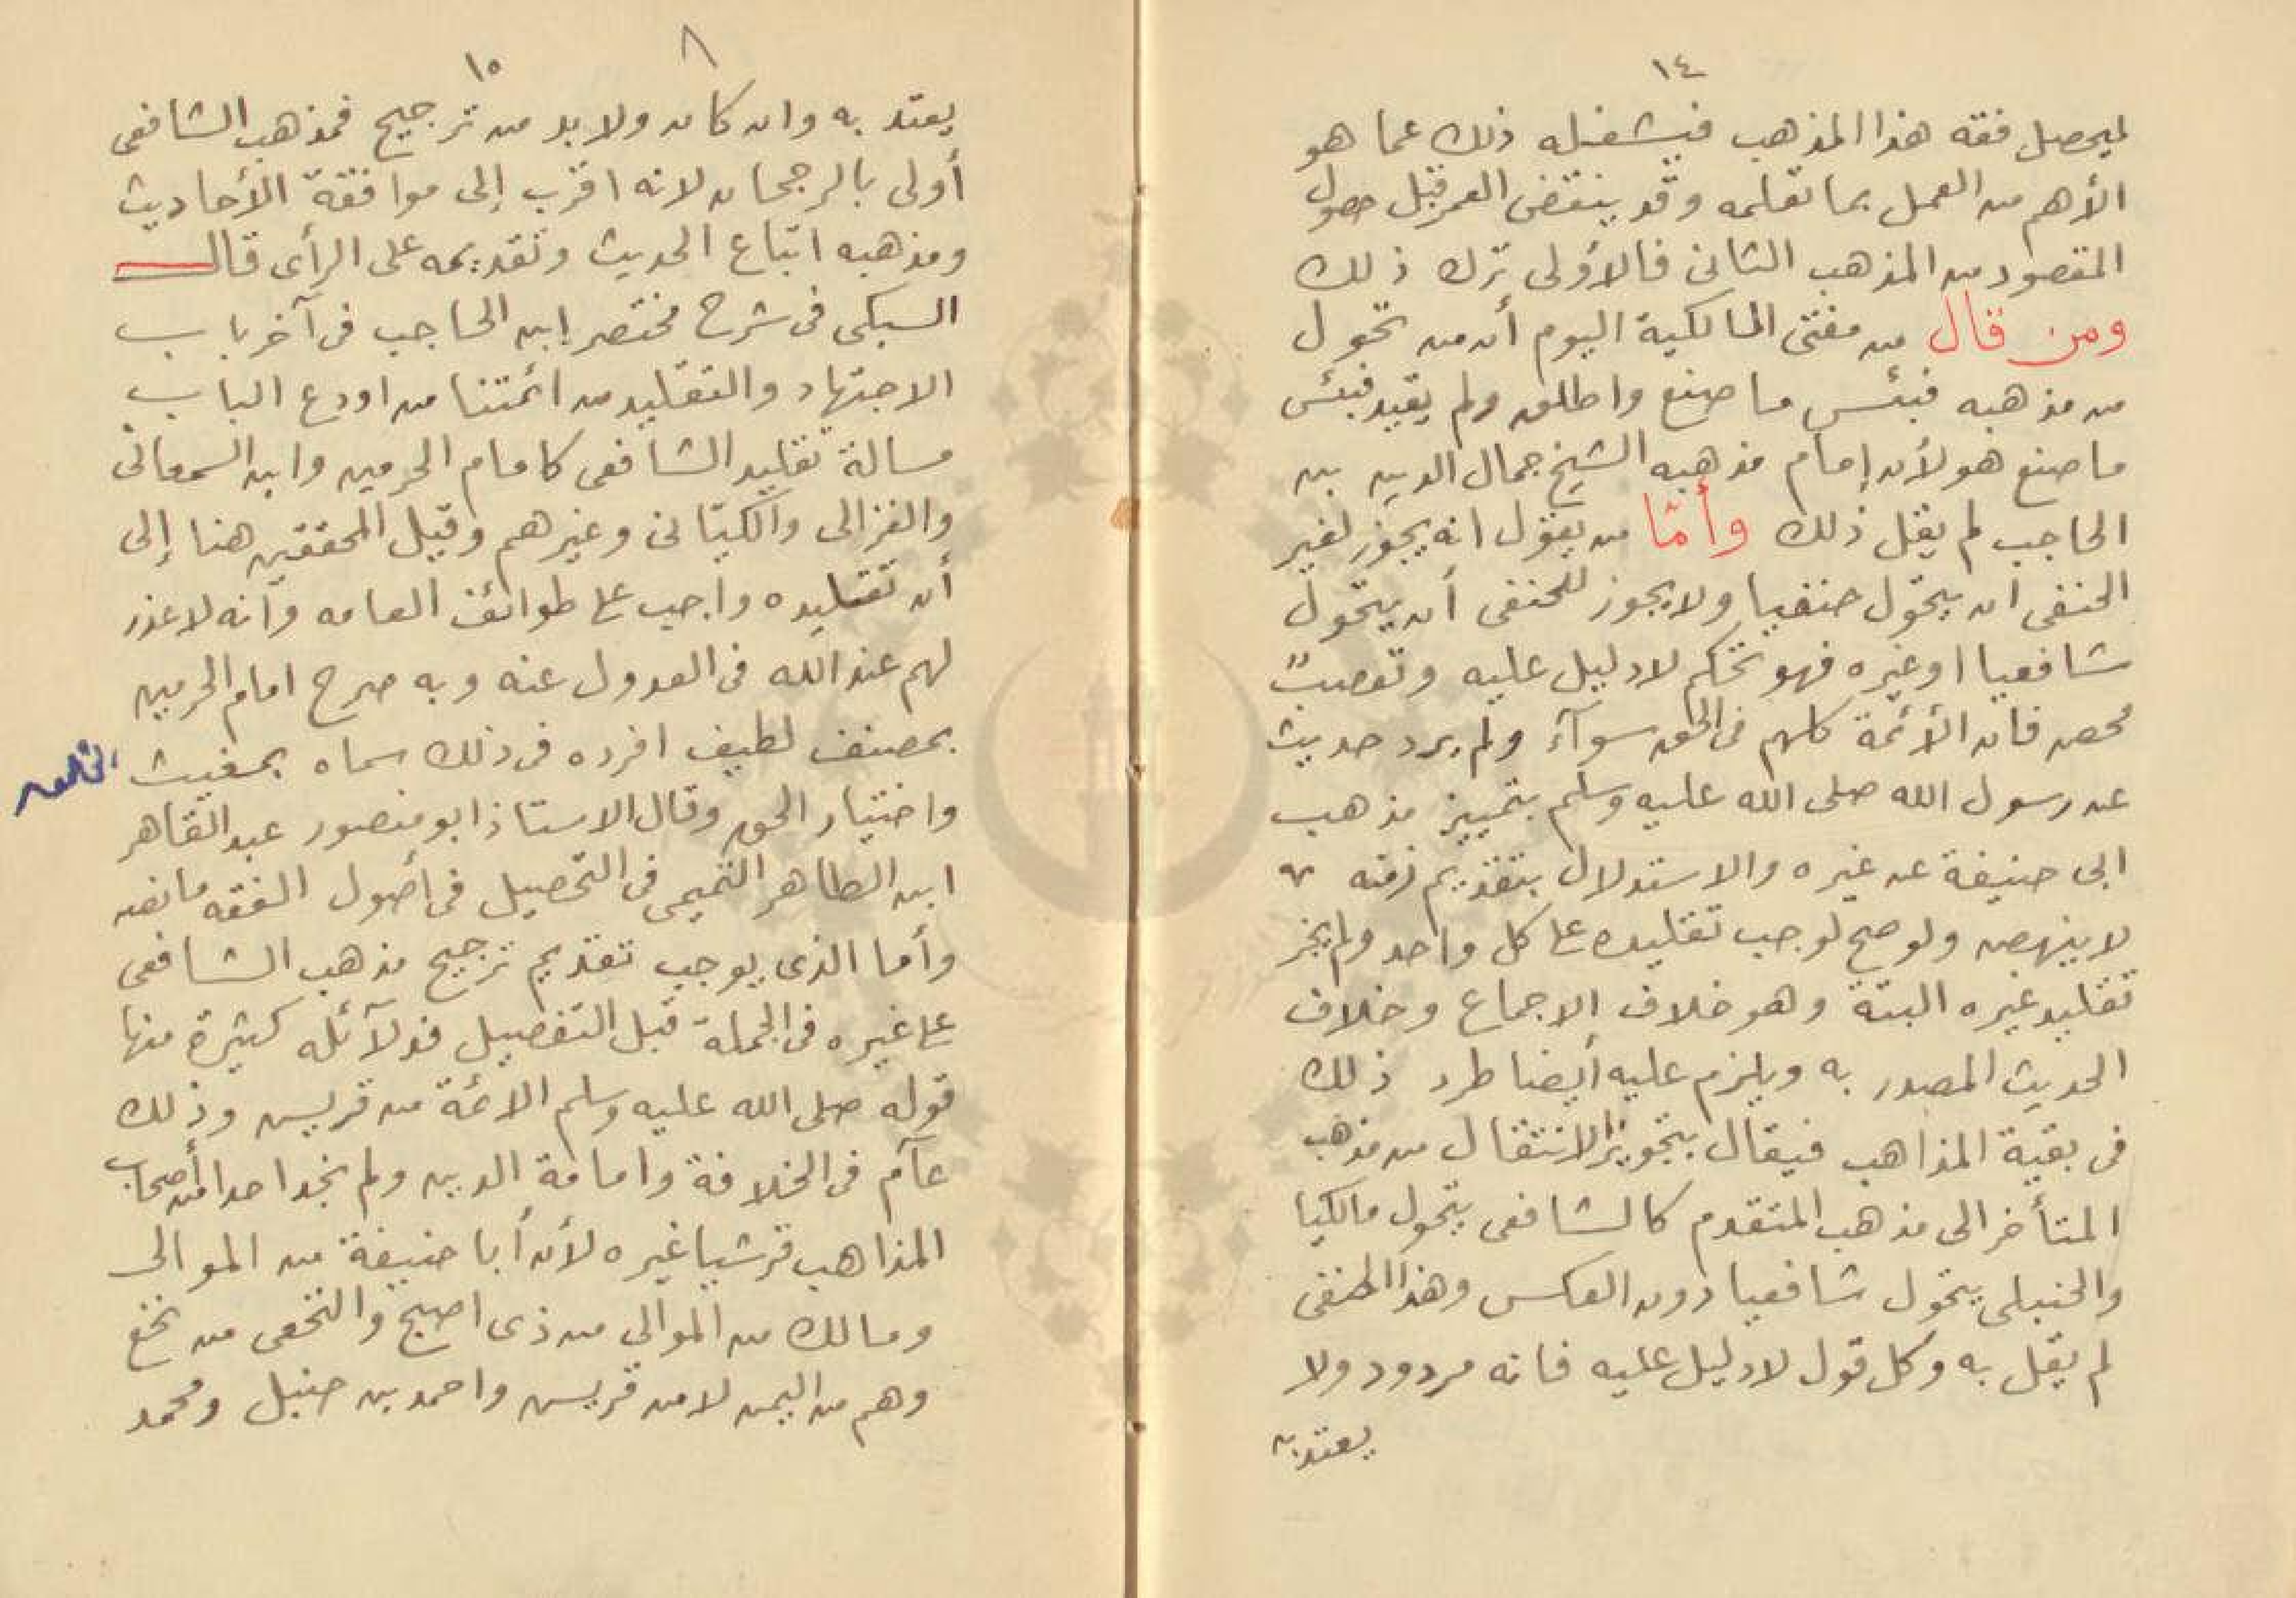 ١٤
ليحصل فقه هذا المذهب فيشغله ذلك عما هو
الأهم من العمل بما تعلمه وقد ينقضى العمر قبل حصول
المقصود من المذهب الثانى فالأولى ترك ذلك
ومن قال من مفتى المالكية اليوم أن من تحول
من مذهبه فبئس ما صنع واطلق ولم يقيد فبئس
ما صنع هو لأن إمام مذهبه الشيخ جمال الدين بن
الحاجب لم يقل ذلك وأمّا من يقول انه يجوز لغير
الحنفى ان يتحول حنفيا ولا يجوز للحنفى أن يتحول
شافعيا او غيره فهو تحكم لا دليل عليه وتعصبٌ
محض فان الأئمة كلهم فى الحق سوآء ولم يرد حديث
عن رسول الله صلى الله عليه وسلم بتمييز مذهب
ابى حنيفة عن غيره والاستدلال بتقديم زمنه
لا ينهض ولو صح لوجب تقليده على كل واحد ولم يجز
تقليد غيره البتة وهو خلاف الاجماع وخلاف
الحديث المصدر به ويلزم عليه أيضا طرد ذلك
فى بقية المذاهب فيقال بتجويز الانتقال من مذهب
المتأخر الى مذهب المتقدم كالشافعى يتحول مالكيا
والحنبلى يتحول شافعيا دون العكس وهذا الحنفى
لم يقل به وكل قول لا دليل عليه فانه مردود ولا
يعتد به
٨
١٥
يعتد به وان كان ولا بد من ترجيح فمذهب الشافعى
أولى بالرجحان لانه اقرب إلى موافقة الأحاديث
ومذهبه اتباع الحديث وتقديمه على الرأى قال
السبكى فى شرح مختصر ابن الحاجب فى آخر باب
الاجتهاد والتقليد من ائمتنا من اودع الباب
مسالة تقليد الشافعى كامام الحرمين وابن السمعانى
والغزالى والكيانى وغيرهم وقيل المحققين هنا إلى
أن تقليده واجب على طوائف العامه وانه لا عذر
لهم عند الله فى العدول عنه وبه صرح امام الحرمين
بمصنف لطيف افرده فى ذلك سماه بمغيث الخلق
واختيار الحق وقال الاستاذ ابو منصور عبد القاهر
ابن الطاهر التميمى فى التحصيل فى أصول الفقه ما نصه
وأما الذى يوجب تقديم ترجيح مذهب الشافعى
على غيره فى الجملة قبل التفصيل فدلآئله كثيرة منها
قوله صلى الله عليه وسلم الائمة من قريس وذلك
عآم فى الخلافة وامامة الدين ولم نجد احدا من أصحاب
المذاهب قرشيا غيره لأن أبا حنيفة من الموالى
ومالك من الموالى من ذى اصبح والنخعى من نخع
وهم من اليمن لا من قريس واحمد بن حنبل ومحمد